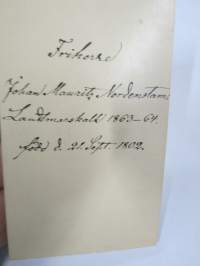 Friherre
Johan Mauritz Nordenstam
Landtmarskalk 1863–64.
född d. 21. Sept. 1802.